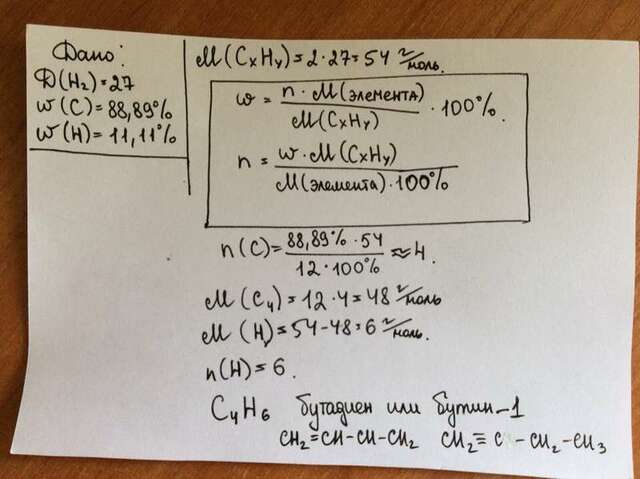 Дано:
D(H₂)=27
w(C)=88,89%
w(H)=11,11%
M(CxHy)=2·27=54 г/моль.
w = n·M(элемента)/M(CxHy) · 100%.
n = w·M(CxHy)/M(элемента)·100%
n(C)=88,89%·54/12·100% ≈ 4.
M(C₄)=12·4=48 г/моль
M(H)=54-48=6 г/моль.
n(H)=6.
C₄H₆ бутадиен или бутин-1
CH₂=CH-CH-CH₂ CH₂≡C-CH₂-CH₃